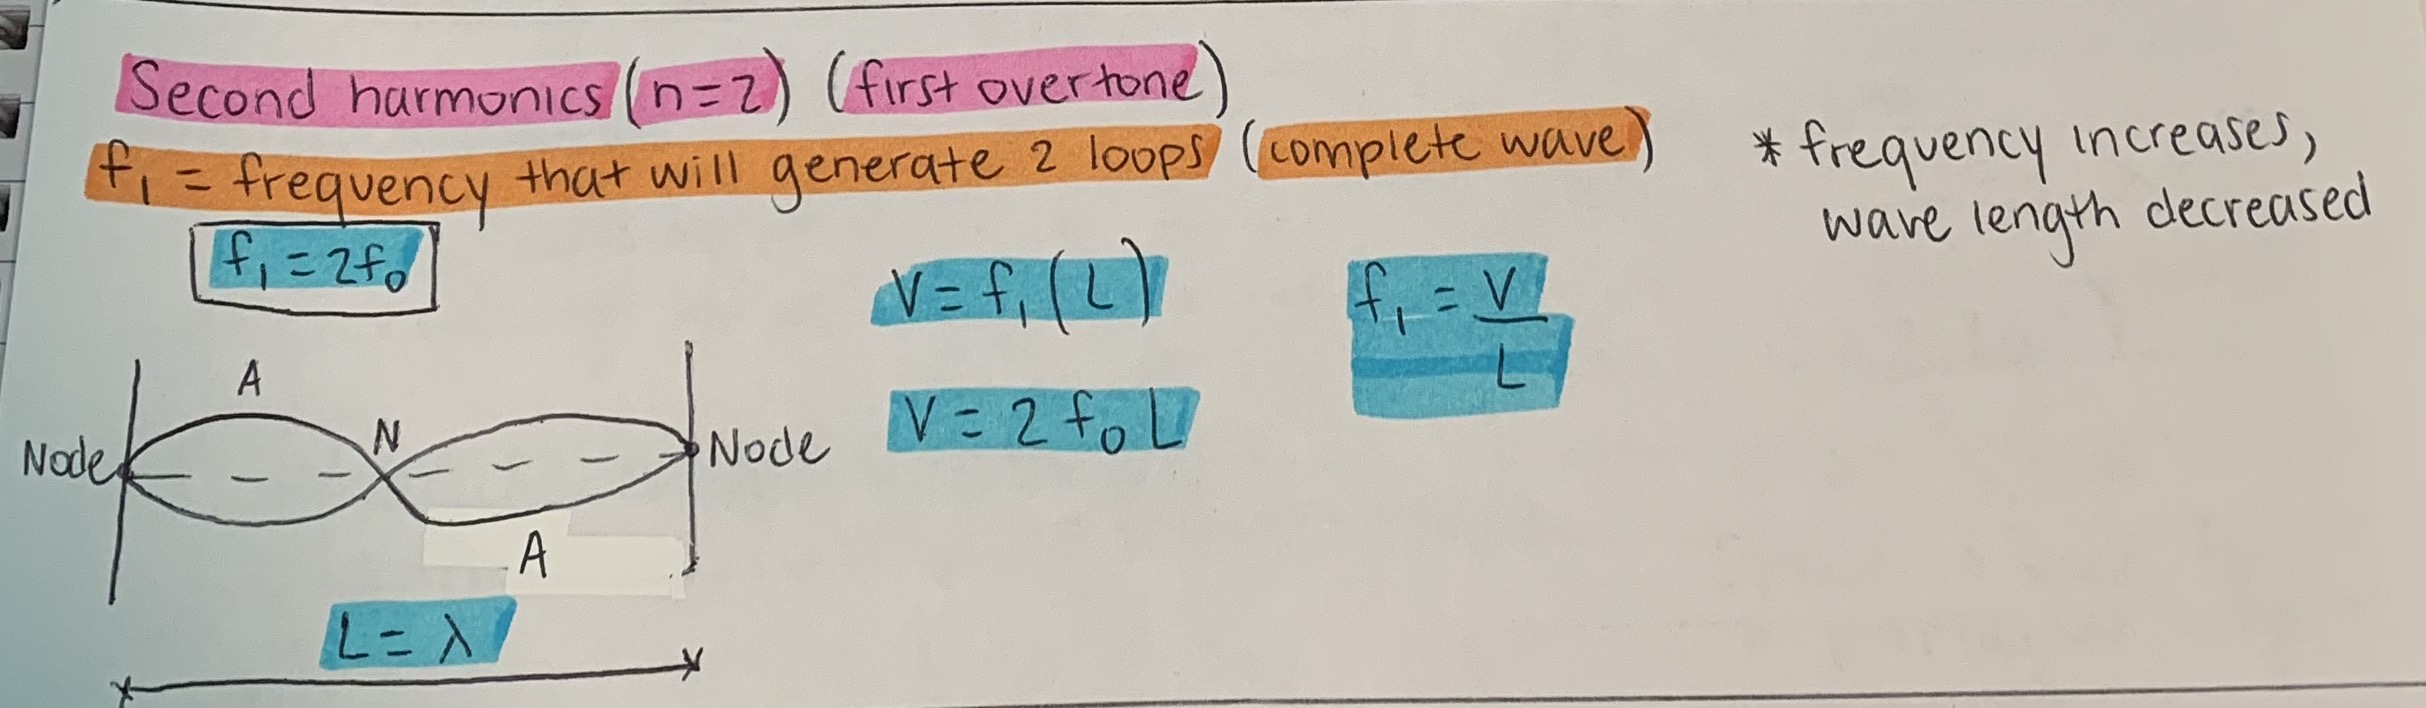 Second harmonics (n=2) (first overtone)
f₁ = frequency that will generate 2 loops (complete wave)
* frequency increases,
wave length decreased
f₁ = 2f₀
V = f₁ (L)
f₁ = V/L
V = 2 f₀ L
A
N
Node
Node
A
L = λ